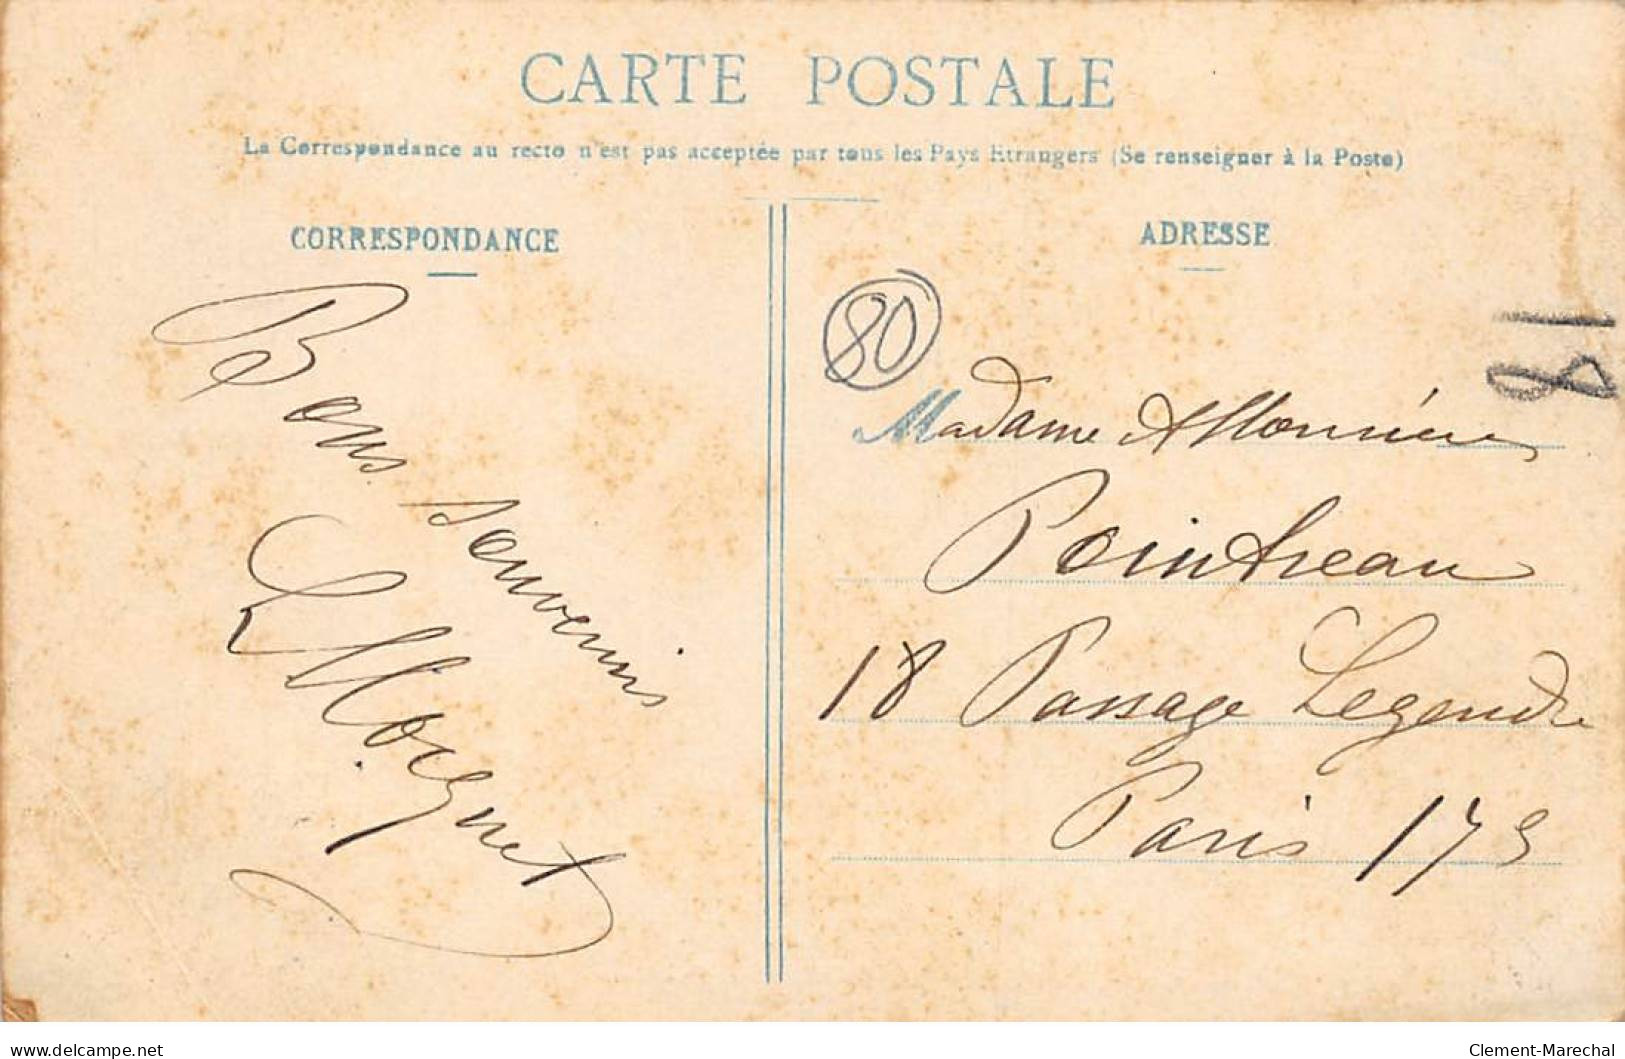 CARTE POSTALE
La Correspondance au recto n'est pas acceptée par tous les Pays Etrangers (Se renseigner à la Poste)
CORRESPONDANCE
Bons souvenirs
ADRESSE
80
81
Madame &
Pointreau
18 Passage Legendre
Paris 17e
www.delcampe.net
Clement-Marechal